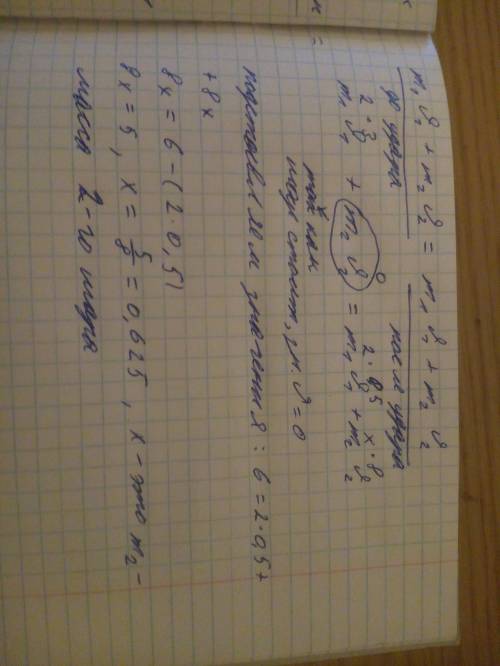 m₁ ϑ₁ + m₂ ϑ₂ = m₁ ϑ₁ + m₂ ϑ₂
до удара после удара
2 · 3 2 · 0,5 x · 8
m₁ ϑ₁ + m₂ ϑ₂ = m₁ ϑ₁ + m₂ ϑ₂
0
так как
шар стоит, ϑ = 0
подставим значения : 6 = 2 · 0,5 +
+ 8x
8x = 6 - (2 · 0,5)
8x = 5, x = 5/8 = 0,625, x - это m₂ -
масса 2-го шара